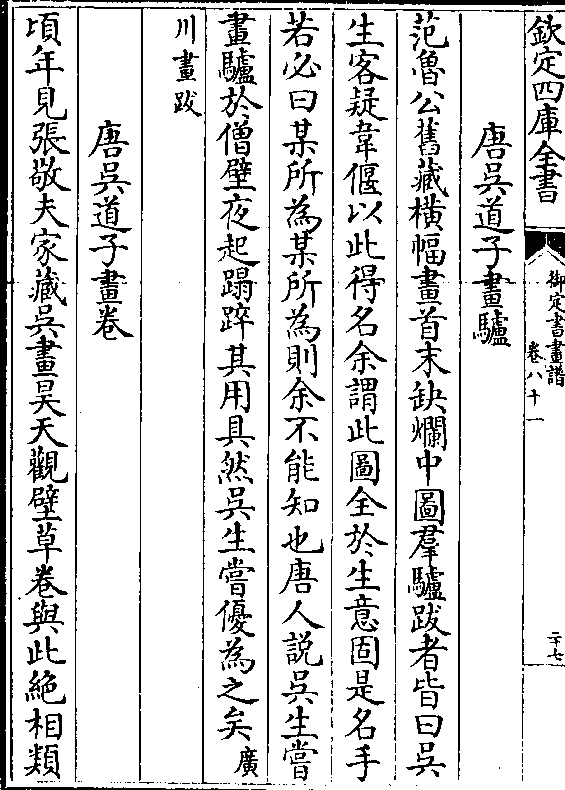 欽定四庫全書
御定書畫譜
卷八十一
二十七
唐吳道子畫驢
范魯公舊藏橫幅畫首末缺爛中圖羣驢跋者皆曰吳
生客疑韋偃以此得名余謂此圖全於生意固是名手
若必曰某所為某所為則余不能知也唐人說吳生嘗
畫驢於僧壁夜起蹋踤其用具然吳生嘗優為之矣廣
川畫跋
唐吳道子畫卷
頃年見張敬夫家藏吳畫昊天觀壁草卷與此絶相類